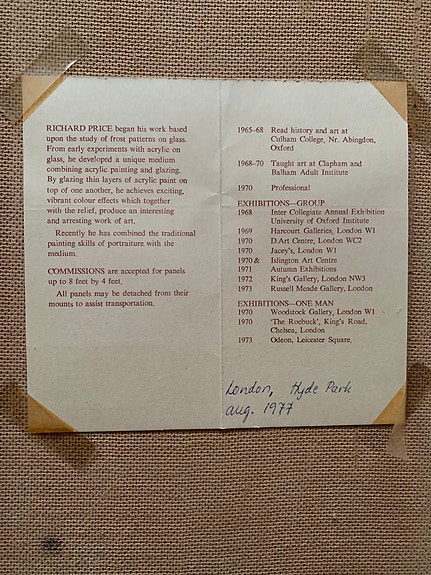 RICHARD PRICE began his work based
upon the study of frost patterns on glass.
From early experiments with acrylic on
glass, he developed a unique medium
combining acrylic painting and glazing.
By glazing thin layers of acrylic paint on
top of one another, he achieves exciting,
vibrant colour effects which together
with the relief, produce an interesting
and arresting work of art.
Recently he has combined the traditional
painting skills of portraiture with the
medium.
COMMISSIONS are accepted for panels
up to 8 feet by 4 feet.
All panels may be detached from their
mounts to assist transportation.
1965-68 Read history and art at
Culham College, Nr. Abingdon,
Oxford
1968-70 Taught art at Clapham and
Balham Adult Institute
1970 Professional
EXHIBITIONS—GROUP
1968 Inter Collegiate Annual Exhibition
University of Oxford Institute
1969 Harcourt Galleries, London W1
1970 D.Art Centre, London WC2
1970 Jacey's, London W1
1970 & Islington Art Centre
1971 Autumn Exhibitions
1972 King's Gallery, London NW3
1973 Russell Meade Gallery, London
EXHIBITIONS—ONE MAN
1970 Woodstock Gallery, London W1
1970 'The Roebuck', King's Road,
Chelsea, London
1973 Odeon, Leicester Square.
London, Hyde Park
aug. 1977